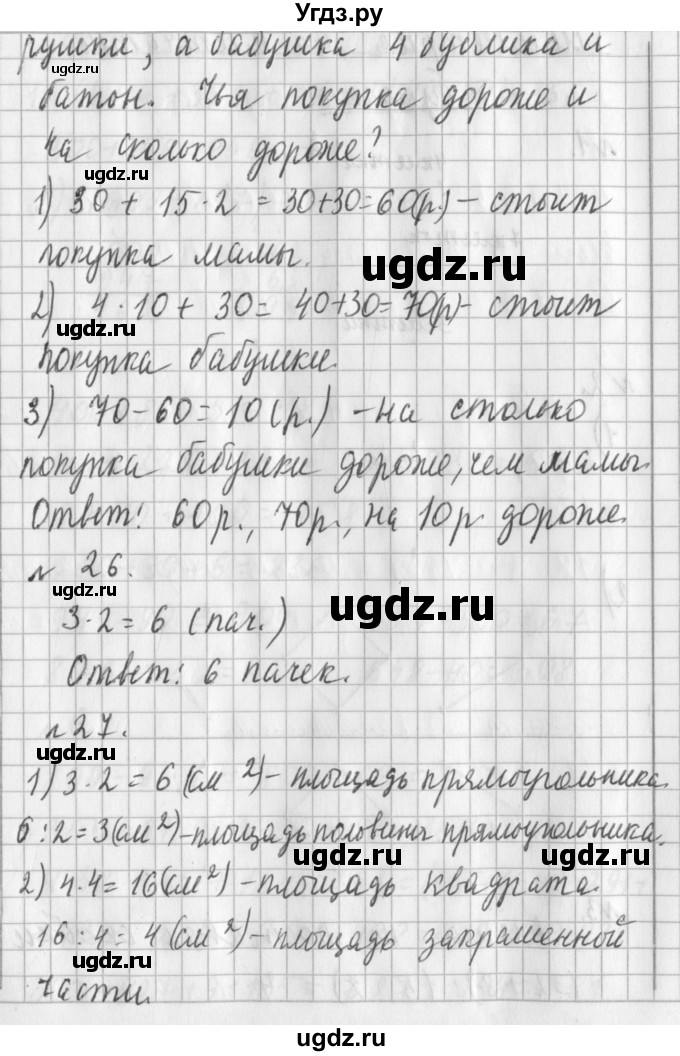 Угдз.ру
рушки, а бабушка 4 бублика и
ugdz.ru
батон. Чья покупка дороже и
на сколько дороже?
ugdz.ru
1) 30 + 15·2 = 30+30=60(р.) – стоит
покупка мамы.
ugdz.ru
2) 4·10+ 30= 40+30=70(р) – стоит
ugdz.ru
покупка бабушки.
3) 70-60=10(р.) – на столько
покупка бабушки дороже, чем мамы.
ugdz.ru
Ответ: 60р., 70р., на 10р. дороже.
№ 26.
ugdz.ru
ugdz.ru
3·2= 6 (пач.)
Ответ: 6 пачек.
№27.
ugdz.ru
1) 3·2 = 6 (см²) – площадь прямоугольника.
6:2=3(см²) – площадь половины прямоугольника.
ugdz.ru
2) 4·4= 16(см²) – площадь квадрата.
16:4= 4(см²) – площадь закрашенной
ugdz.ru
части.
ugdz.ru